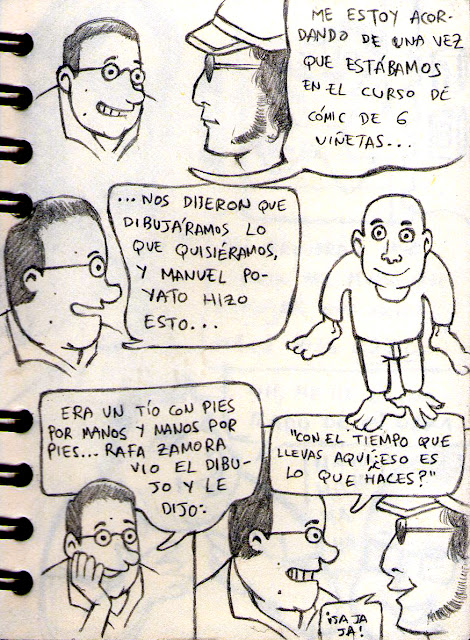 ME ESTOY ACOR-
DANDO DE UNA VEZ
QUE ESTÁBAMOS
EN EL CURSO DE
CÓMIC DE 6
VIÑETAS...
...NOS DIJERON QUE
DIBUJÁRAMOS LO
QUE QUISIÉRAMOS,
Y MANUEL PO-
YATO HIZO
ESTO...
ERA UN TÍO CON PIES
POR MANOS Y MANOS POR
PIES... RAFA ZAMORA
VIO EL DIBU-
JO Y LE
DIJO:
"CON EL TIEMPO QUE
LLEVAS AQUÍ ¿ESO ES
LO QUE HACES?"
¡JA JA
JA!